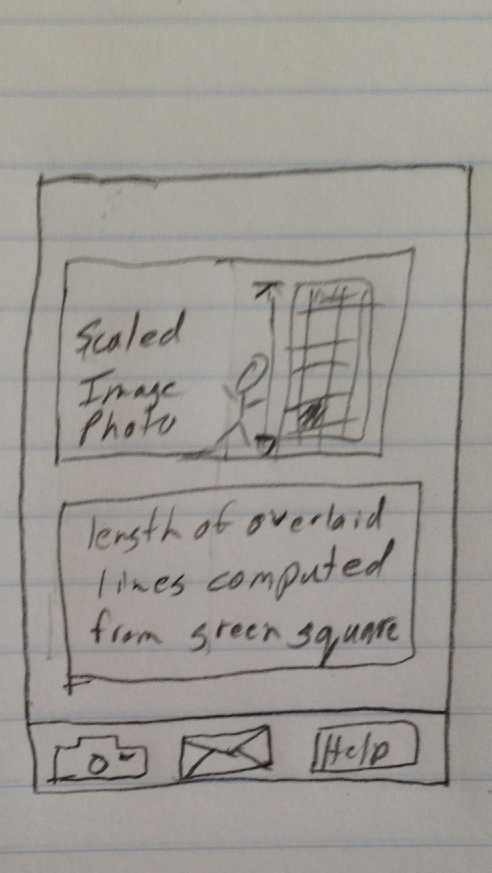 Scaled
Image
Photo
length of overlaid
lines computed
from green square
Help